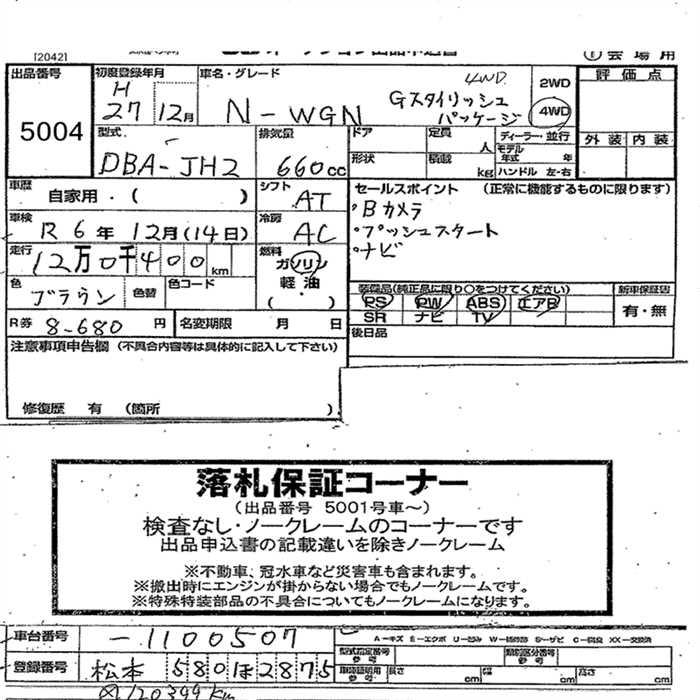 [2042]
オークション出品申込書
① 会場用
出品番号 5004
初度登録年月 H 27 12月
車名・グレード N-WGN 4WD Gスタイリッシュパッケージ
2WD
4WD
評価点
外装 内装
型式 DBA-JH2
排気量 660cc
ドア
定員 人
ディーラー・並行
モデル年式 年
形状
積載 kg
ハンドル 左・右
車歴 自家用・( )
シフト AT
セールスポイント (正常に機能するものに限ります)
・Bカメラ
・プッシュスタート
・ナビ
車検 R 6年 12月(14日)
冷房 AC
走行 12万0千400km
燃料 ガソリン
軽油
( ・ )
色 ブラウン
色替
色コード
装備品(純正品に限り○をつけてください)
新車保証書
PS PW ABS エアB
有・無
SR ナビ TV
R券 8-680円
名変期限 月 日
後日品
注意事項申告欄 (不具合内容等は具体的に記入して下さい)
修復歴 有 (箇所 )
落札保証コーナー
(出品番号 5001号車～)
検査なし・ノークレームのコーナーです
出品申込書の記載違いを除きノークレーム
※不動車、冠水車など災害車も含まれます。
※搬出時にエンジンが掛からない場合でもノークレームです。
※特殊特装部品の不具合についてもノークレームになります。
車台番号 -1100507
A-キズ E-エクボ U-凹み W-補修跡 S-サビ C-腐食 XX-交換済
型式指定番号 参考
類別区分番号 参考
登録番号 松本 580 ほ 2875
車庫証明用 参考 長さ cm 幅 cm 高さ cm
120399km